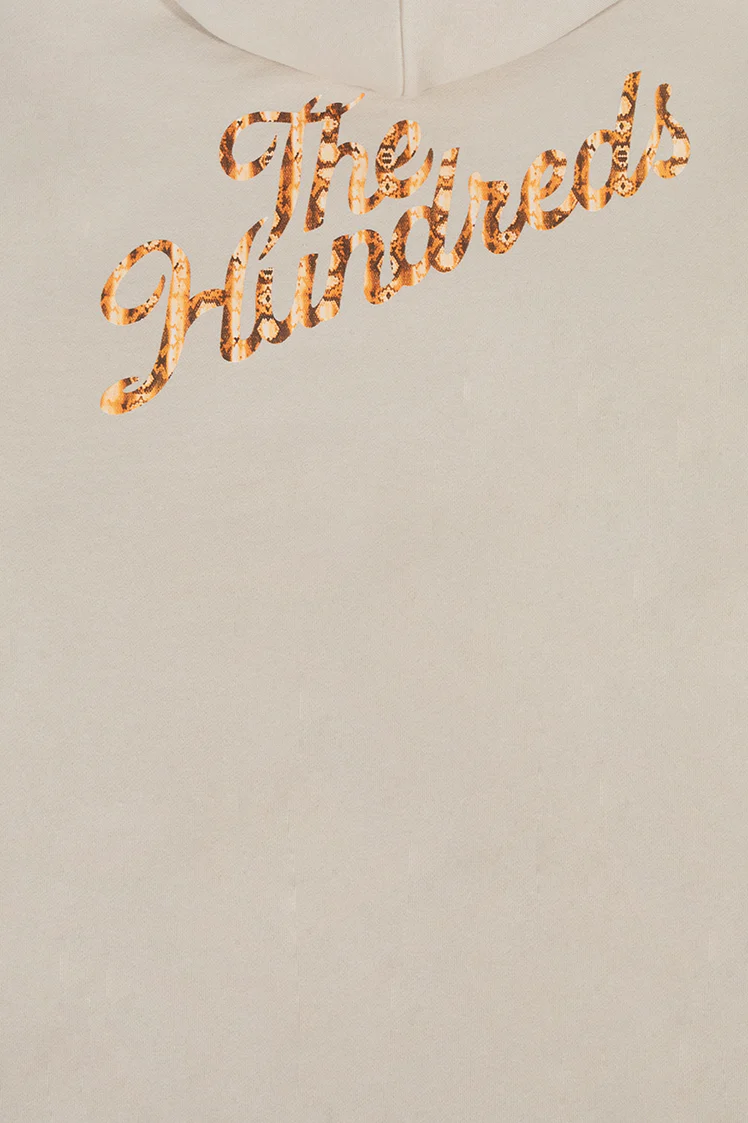 The
Hundreds